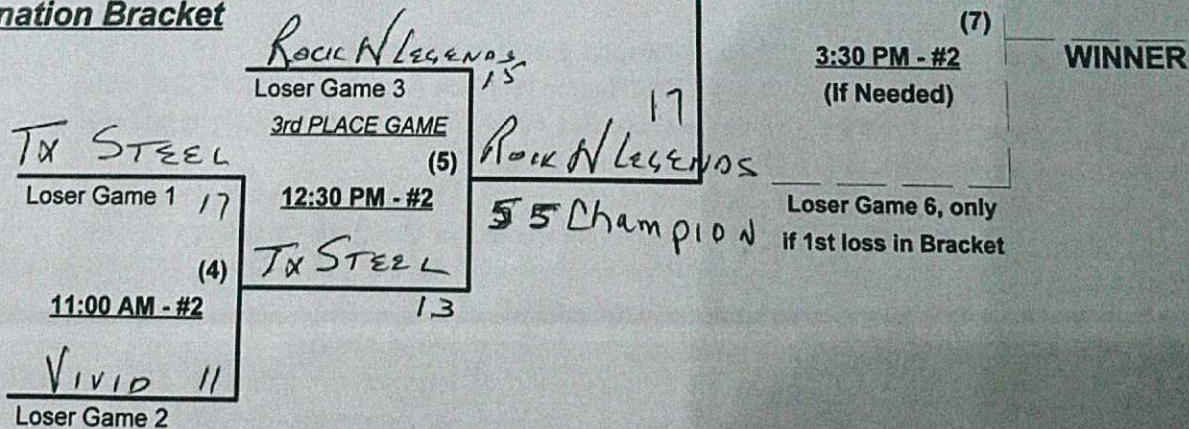 nation Bracket
Rock N Legends
15
Loser Game 3
3rd PLACE GAME
(5)
12:30 PM - #2
Tx Steel
Loser Game 1
17
(4)
11:00 AM - #2
Vivid 11
Loser Game 2
Tx Steel
13
17
Rock N Legends
55 Champion
(7)
3:30 PM - #2
(If Needed)
WINNER
Loser Game 6, only
if 1st loss in Bracket